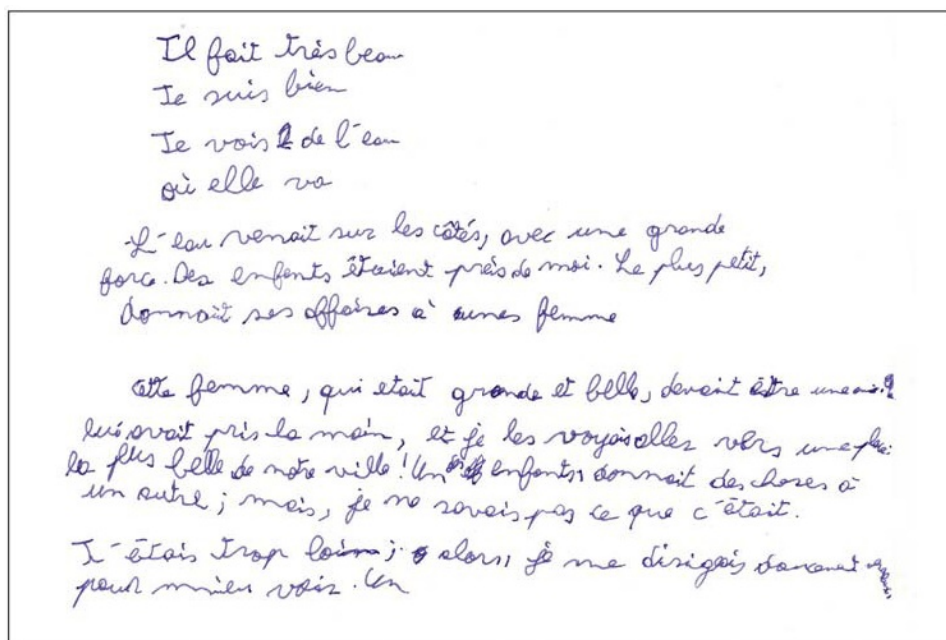 Il fait très beau
Je suis bien
Je vois de l'eau
où elle va
L'eau venait sur les côtés, avec une grande
force. Des enfants étaient près de moi. Le plus petit,
donnait ses affaires à unes femme
cette femme, qui etait grande et belle, devait être une
lui avait pris la main, et je les voyais aller vers une
la plus belle de notre ville ! Un enfants, donnait des choses à
un autre ; mais, je ne savais pas ce que c'était.
J'étais trop loin ; alors, je me dirigais
pour mieu voir. Un